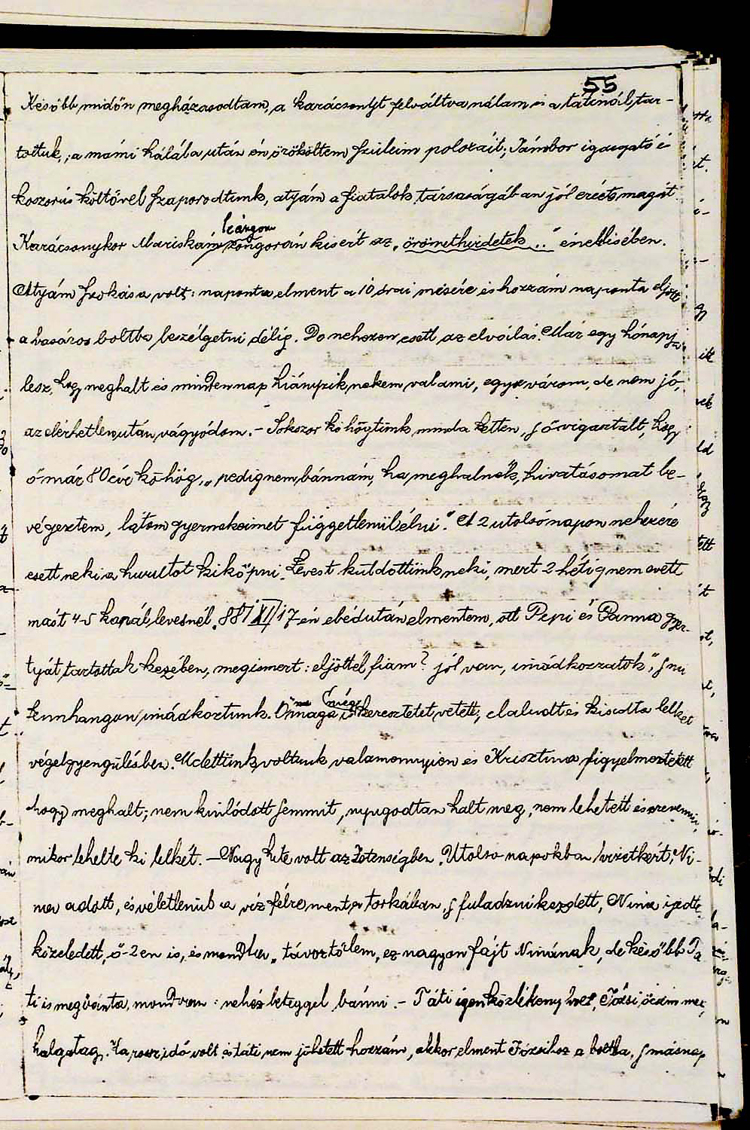 55
Később midőn megházasodtam, a karácsonyt felváltva nálam és a tátinál, tar-
tottuk, a mami halála után én örököltem szüleim polozáit; Jámbor igazgató és
koszorús költővel szaporodtunk, atyám a fiatalok társaságában jól érezte magát
Karácsonykor Mariskam leányom zongorán kisért az „örömethirdetek .." éneklésében.
Atyám szokása volt: naponta elment a 10 órai misére és hozzám naponta eljött
a vasáros boltba beszélgetni délig. De nehezen esett az elválás. Már egy hónapja
lesz, hogy meghalt és mindennap hiányzik nekem valami, egyre várom, de nem jö,
az elérhetlen után vágyódom. – Sokszor köhögtünk mind a ketten, s ő vigasztalt, hogy
ő már 80 év köhög, „pedig nem bánnám, ha meghalnék, hivatásomat be-
végeztem, látom gyermekeimet függetlenül élni." A 2 utolsó napon nehezére
esett neki a hurutot kiköpni. Levest küldöttünk neki, mert 2 hétig nem evett
mást 4-5 kanál levesnél. 88/XI/17-én ebéd után elmentem, ott Pepi és Panna gyer-
tyát tartottak kezében, megismert: eljöttél fiam? jól van, imádkozzatok", s mi
fennhangon imádkoztunk. Önmaga még is keresztetet vetett, elaludt és kiadta lelkét
végelgyengülésben. Mellettünk voltunk valamennyien és Krisztina figyelmeztetett
hogy meghalt; nem kinlódott semmit, nyugodtan halt meg, nem lehetett észrevenni,
mikor lehelte ki lelkét. – Nagy hite volt az Istenségben. Utolsó napokban vizet kért, Ni-
na adott, és véletlenül a víz félrement a torkában, s fuladzni kezdett, Nina ijedt
közeledett, ő-2en is, és mondta „távoz tőlem, ez nagyon fájt Ninának, de később Tá-
ti is megbánta, mondván: nehéz beteggel bánni. – Táti igen közlékeny volt, Józsi öcsém meg
halgatag. Ha rossz idő volt és táti nem jöhetett hozzám, akkor elment Józsihoz a boltba, s másnap